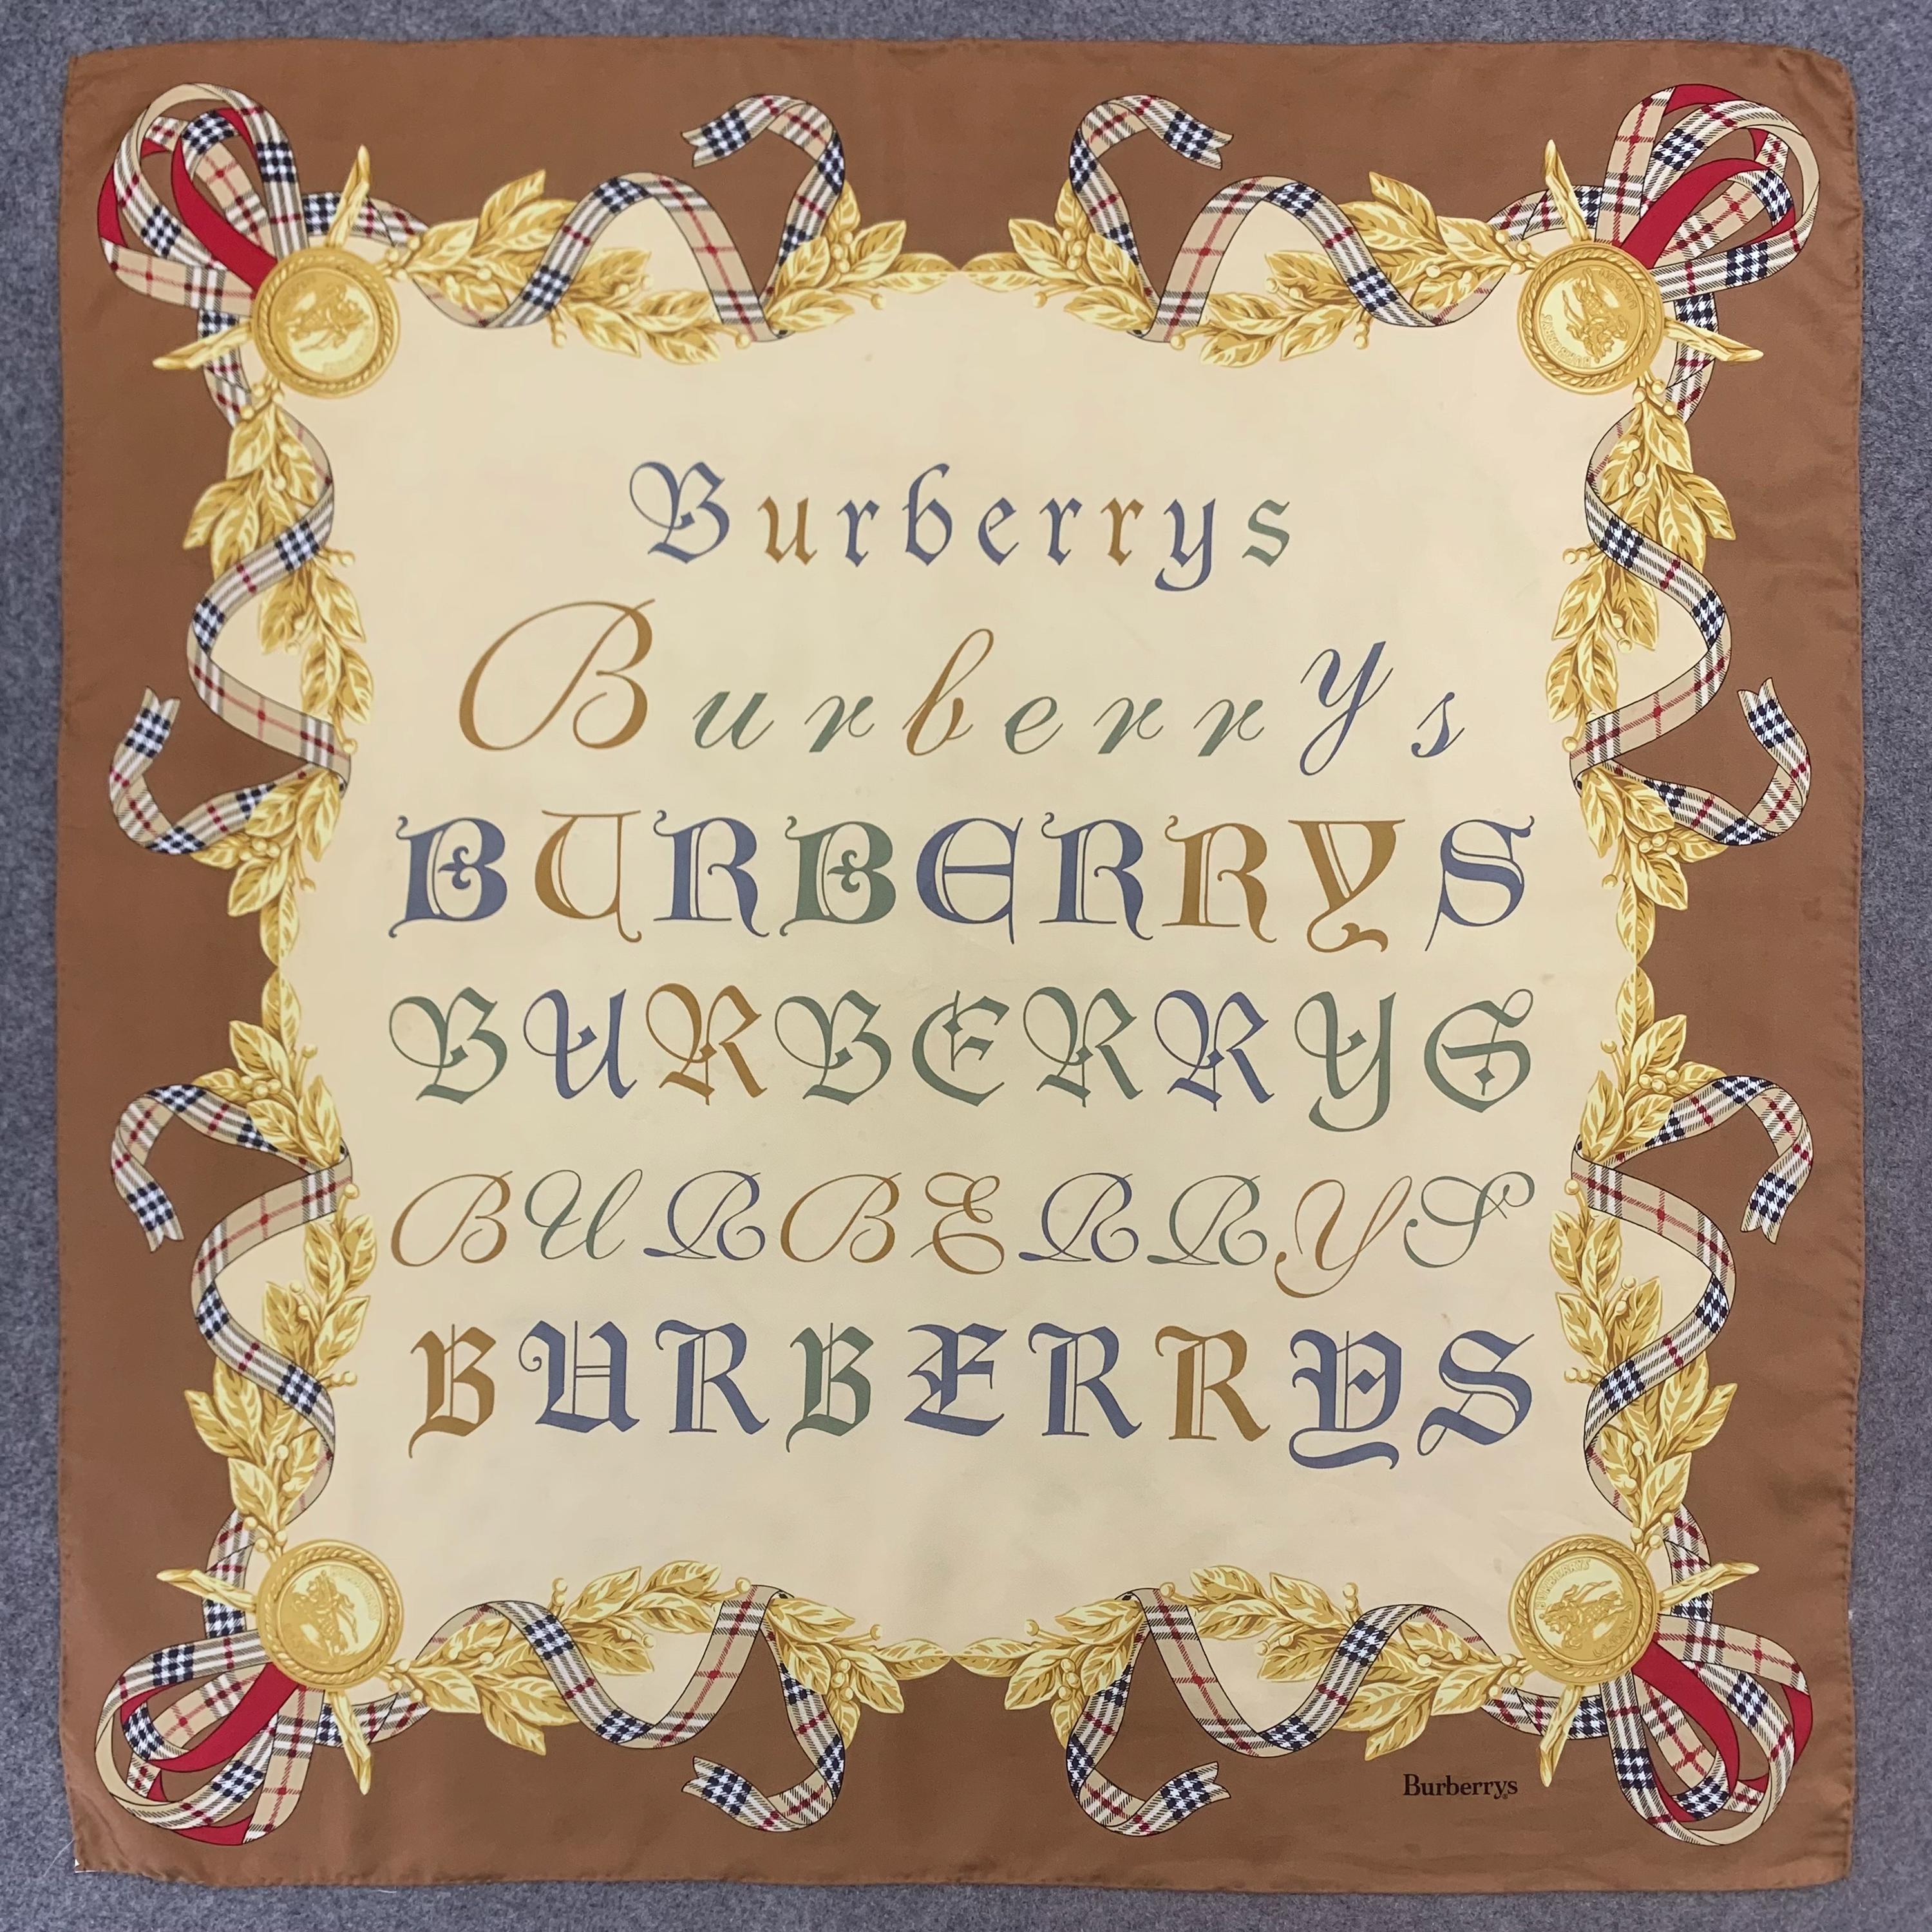 Burberrys
Burberrys
BURBERRYS
BURBERRYS
BURBERRYS
BURBERRYS
Burberrys